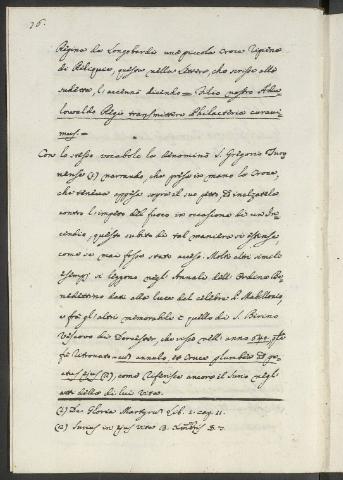 76.
Regina de Longobardi una piccola Croce ripiena
di Reliquie, questo nella Lettera, che scrisse alla
sudetta, li accennò dicendo = Filio nostro Ade
lowaldo Regis transmittere Philacteria curavi
mus =
Con lo stesso vocabolo la denominò S. Gregorio Turo
nense (1) narrando, che presa in mano la Croce,
che teneva appesa sopra il suo petto, ed inalzatola
contro l'impeto del fuoco in occasione di un In
cendio, questo subito di tal maniera si estinse,
come se mai fosse stato acceso. Molti altri simili
esempj si leggono negl'Annali dell'Ordine Be
nedettino dati alla luce dal celebre P. Mabillonio,
e frà gl'altri memorabile è quello di S. Birino
Vescovo di Dorcester, che visse nell'anno
fù ritrovato cum annulo, et Cruce plumbea
(2), come riferisce ancora il Surio negl'
atti della di lui Vita.
(1) De Gloria Martyrum Lib. 1. cap. 11.
(2) Surius in ejus vita 3. Xmbris §. 7.